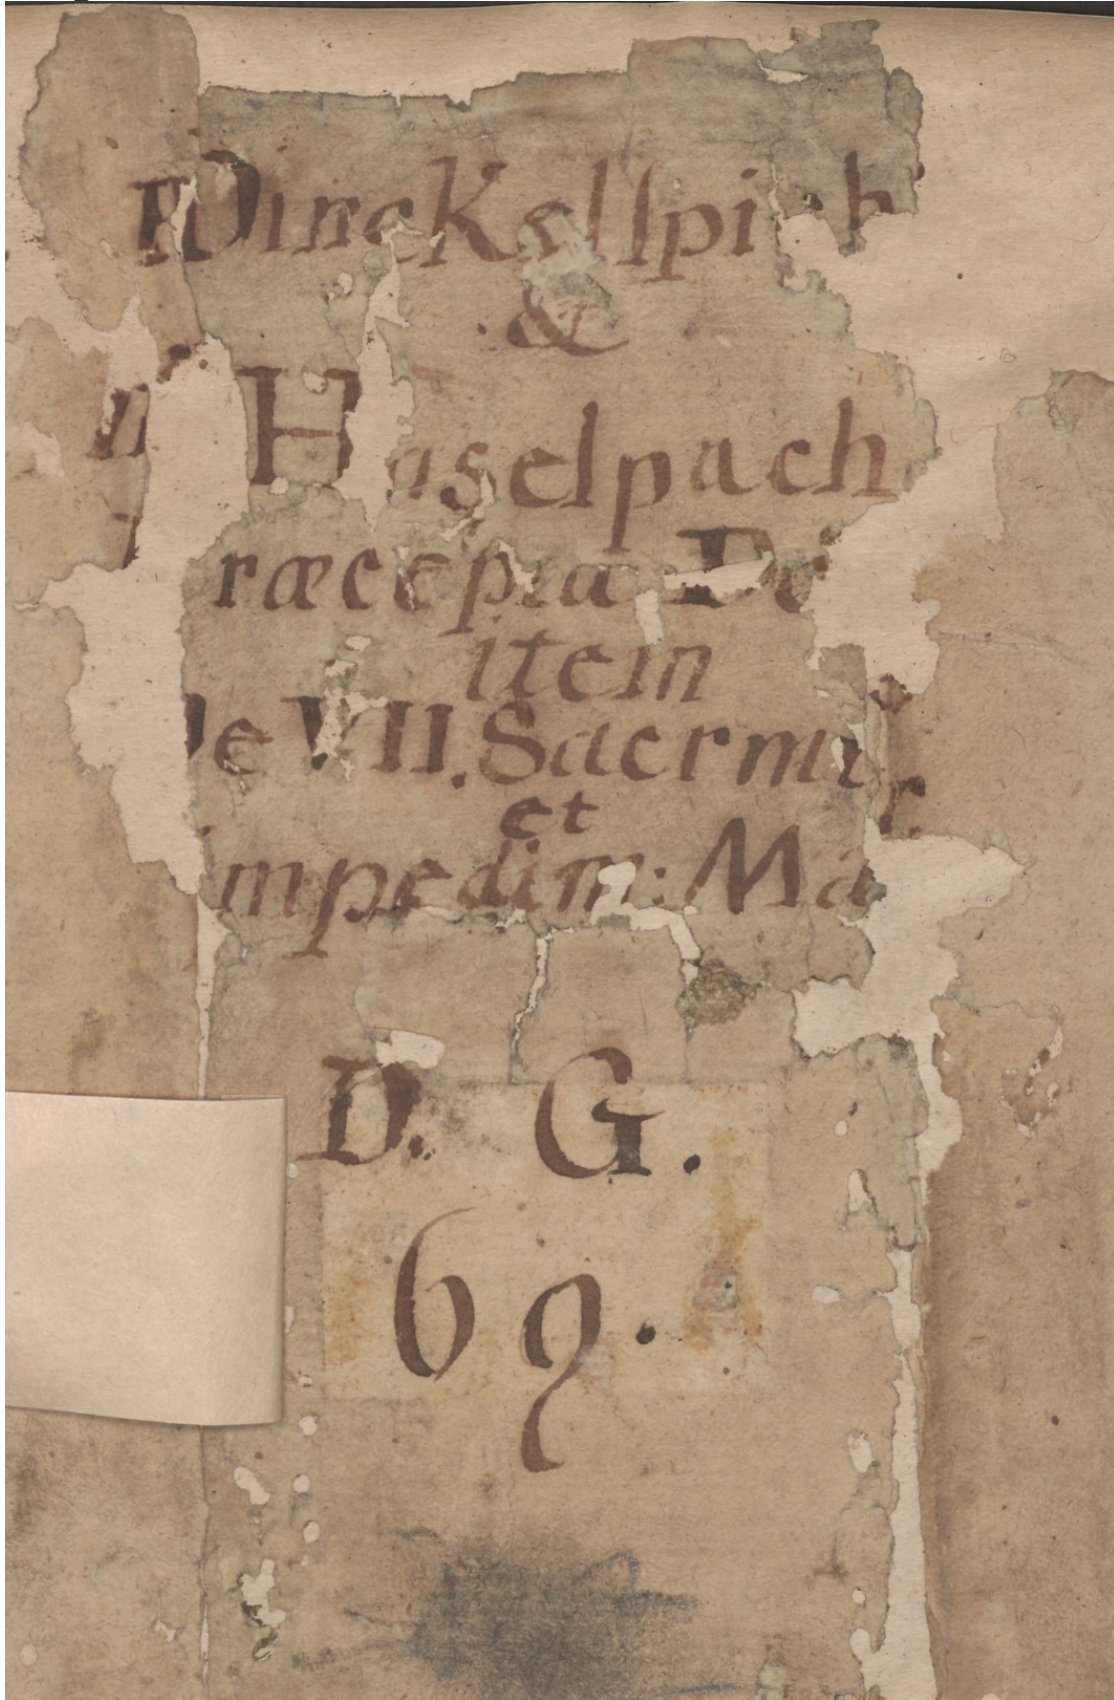 Dinckelspich
&
Haselpach
Præcepta De
item
De VII. Sacrm̃
et
Impedim: Ma
D. G.
69.